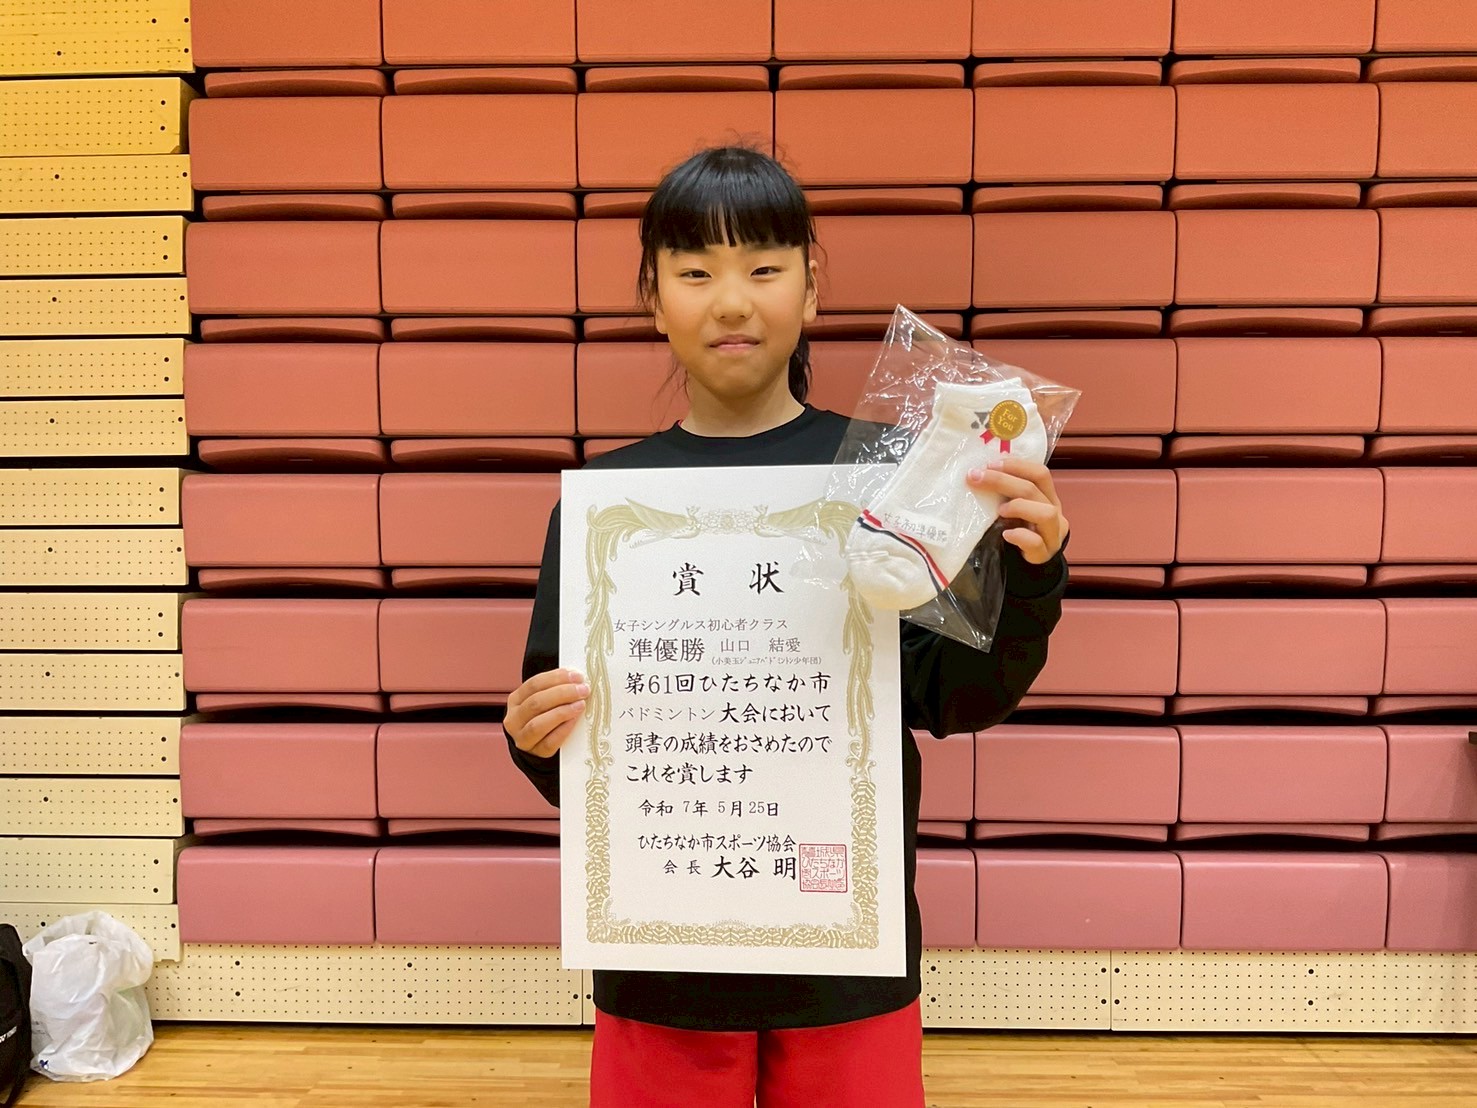 賞状
女子シングルス初心者クラス
準優勝 山口 結愛
(小美玉ジュニアバドミントン少年団)
第61回ひたちなか市
バドミントン大会において
頭書の成績をおさめたので
これを賞します
令和 7年 5月 25日
ひたちなか市スポーツ協会
会長 大谷 明
For
You
準優勝